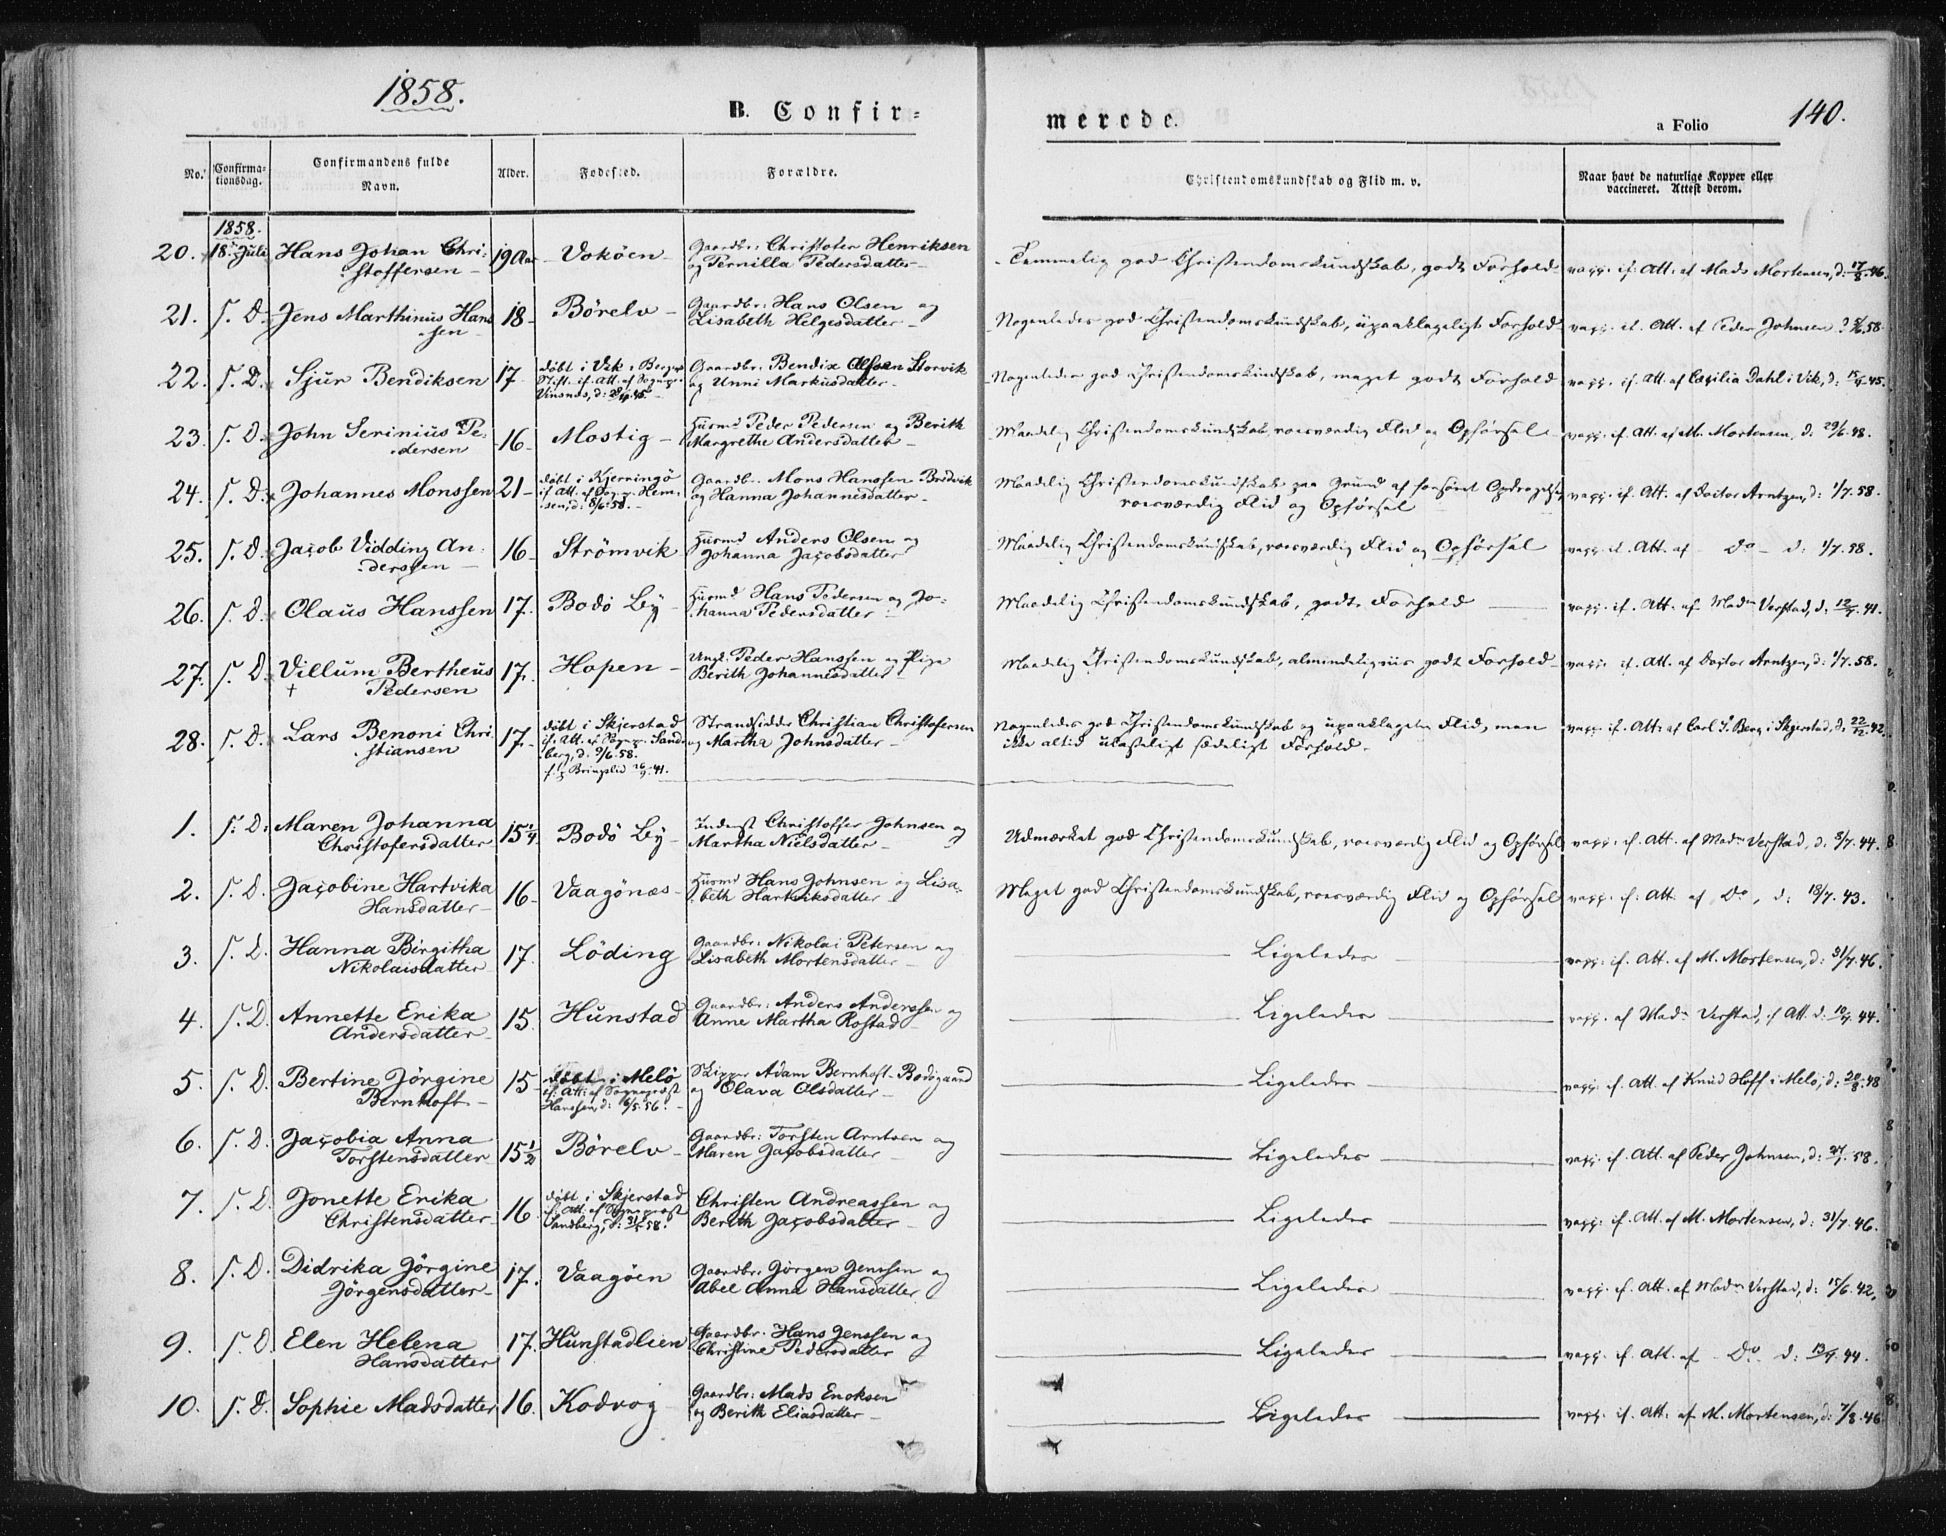 1858.
B. Confir-
merede.
a Folio
140.
No.
Confirma-
tionsdag.
Confirmandens fulde
Navn.
Alder.
Fødested.
Forældre.
Christendomskundskab og Flid m. v.
Naar havt de naturlige Kopper eller
vaccineret. Attest derom.
1858.
20. 18. Juli Hans Johan Chri- 19 Aar Vokøen Gaardbr: Christofer Henriksen Temmelig god Christendomskundskab, godt Forhold vacc. if. Att. af Mads Mortensen, d: 17/8.46.
stoffersen og Pernilla Pedersdatter
21. S. D. Jens Marthinus Hans 18 Børelv Gaardbr: Hans Olsen og Nogenledes god Christendomskundskab, upaaklageligt Forhold vacc. if. Att. af Peder Johnsen
sen Lisabeth Helgesdatter
22. S. D. Sjur Bendiksen 17 døbt i Vik i Bergens Gaardbr: Bendix Olsen Storvik Nogenledes god Christendomskundskab, meget godt Forhold vacc. if. Att. af Cecilia Dahl i Vik, d: 15/9.45.
Stift. if. Att. af Sognepr. og Unni Markusdatter
Vinsnæs, d:
23. S. D. John Serinius Pe- 16 Mostig Husmd Peder Pedersen og Berith Maadelig Christendomskundskab, roesværdig Flid og Opførsel vacc. if. Att. af M. Mortensen, d. 29/6.48.
dersen Margrethe Andersdatter
24. S. D. Johannes Monssen 21 døbt i Kjerringö Gaardbr. Mons Hanssen Bredvik Maadelig Christendomskundskab paa Grund af forsömt Opdragelse, vacc. if. Att. af Doctor Arntzen, d: 1/7.58.
if Att. af Sogpr. Hem- og Hanna Johannesdatter roesværdig Flid og Opførsel
sen, d: 8/6.58.
25. S. D. Jacob Vidding An- 16 Strömvik Husmd Anders Olsen og Maadelig Christendomskundskab, roesværdig Flid og Opførsel vacc. if. Att. af Do d: 1/7.58.
derssen Johanna Jacobsdatter
26. S. D. Olaus Hanssen 17. Bodö By Husmd Hans Pedersen og Jo- Maadelig Christendomskundskab, godt Forhold vacc. if. Att. af Madm Verstad, d: 12/7.41.
hanna Pedersdatter
27. S. D. Villum Bertheus 17. Hopen Ungk: Peder Hanssen og Pige Maadelig Christendomskundskab, almindeligviis godt Forhold vacc. if. Att. af Doctor Arntzen, d: 1/7.58.
Pedersen Berith Johannesdatter
28. S. D. Lars Benoni Chri- 17. døbt i Skjerstad Strandsidder Christian Christofersen Nogenledes god Christendomskundskab og upaaklagelig Flid, men vacc. if. Att: af Carl J. Berg i Skjerstad, d: 22/12.42.
stiansen if. Att. af Sogpr. Sand- og Martha Johnsdatter ikke altid ulasteligt sædeligt Forhold.
berg, d: 9/6.58.
1. S. D. Maren Johanna 15 1/4 Bodö By Inderst Christoffer Johnsen og Udmærket god Christendomskundskab, roesværdig Flid og Opførsel vacc. if. Att. af Madm Verstad, d: 8/7.44.
Christofersdatter Martha Nielsdatter
2. S. D. Jacobine Hartvika 16 Vaagönæs Husmd Hans Johnsen og Lisa- Meget god Christendomskundskab, roesværdig Flid og Opførsel vacc. if. Att. af Do, d: 18/7.43.
Hansdatter beth Hartviksdatter
3. S. D. Hanna Birgitha 17. Löding Gaardbr: Nikolai Petersen og Ligeledes vacc. if. Att. af M. Mortensen, d: 31/7.46.
Nikolaisdatter Lisabeth Mortensdatter
4. S. D. Annette Erika 15. Hunstad Gaardbr: Anders Anderssen og Ligeledes vacc. af Madm Verstad, if Att. d: 10/7.44.
Andersdatter Anne Martha Rostad
5. S. D. Bertine Jörgine 15 døbt i Melö Skipper Adam Bernhoft Bodögaard Ligeledes vacc. if. Att. af Knud Hoff i Melö, d: 20/8.48
Bernhoft if. Att. af Sognepræst og Olava Olsdatter
Hanssen, d: 6/5.56.
6. S. D. Jacobia Anna 15 1/2 Börelv Gaardbr: Torsten Arntsen og Ligeledes vacc. if. Att. af Peder Johnsen, d:
Torstensdatter Maren Jacobsdatter
7. S. D. Jonette Erika 16. døbt i Skjerstad Christen Andreassen og Ligeledes vacc. if. Att. af M. Mortensen, d: 31/7.46.
Christensdatter if. Att. af Sognepræst Berith Jacobsdatter
Sandberg, d:
8. S. D. Didrika Jörgine 17. Vaagöen Gaardbr. Jörgen Jenssen og Ligeledes vacc. if. Att. af Madm Verstad, d: 15/6.42.
Jörgensdatter Abel Anna Hansdatter
9. S. D. Elen Helena 17. Hunstadlien Gaardbr. Hans Jenssen og Ligeledes vacc. if. Att. af Do d:
Hansdatter Christine Pedersdatter
10. S. D. Sophie Madsdatter 16. Kodvog Gaardbr: Mads Enoksen Ligeledes vacc. if. Att: af M. Mortensen, d: 7/8.46
og Berith Eliasdatter